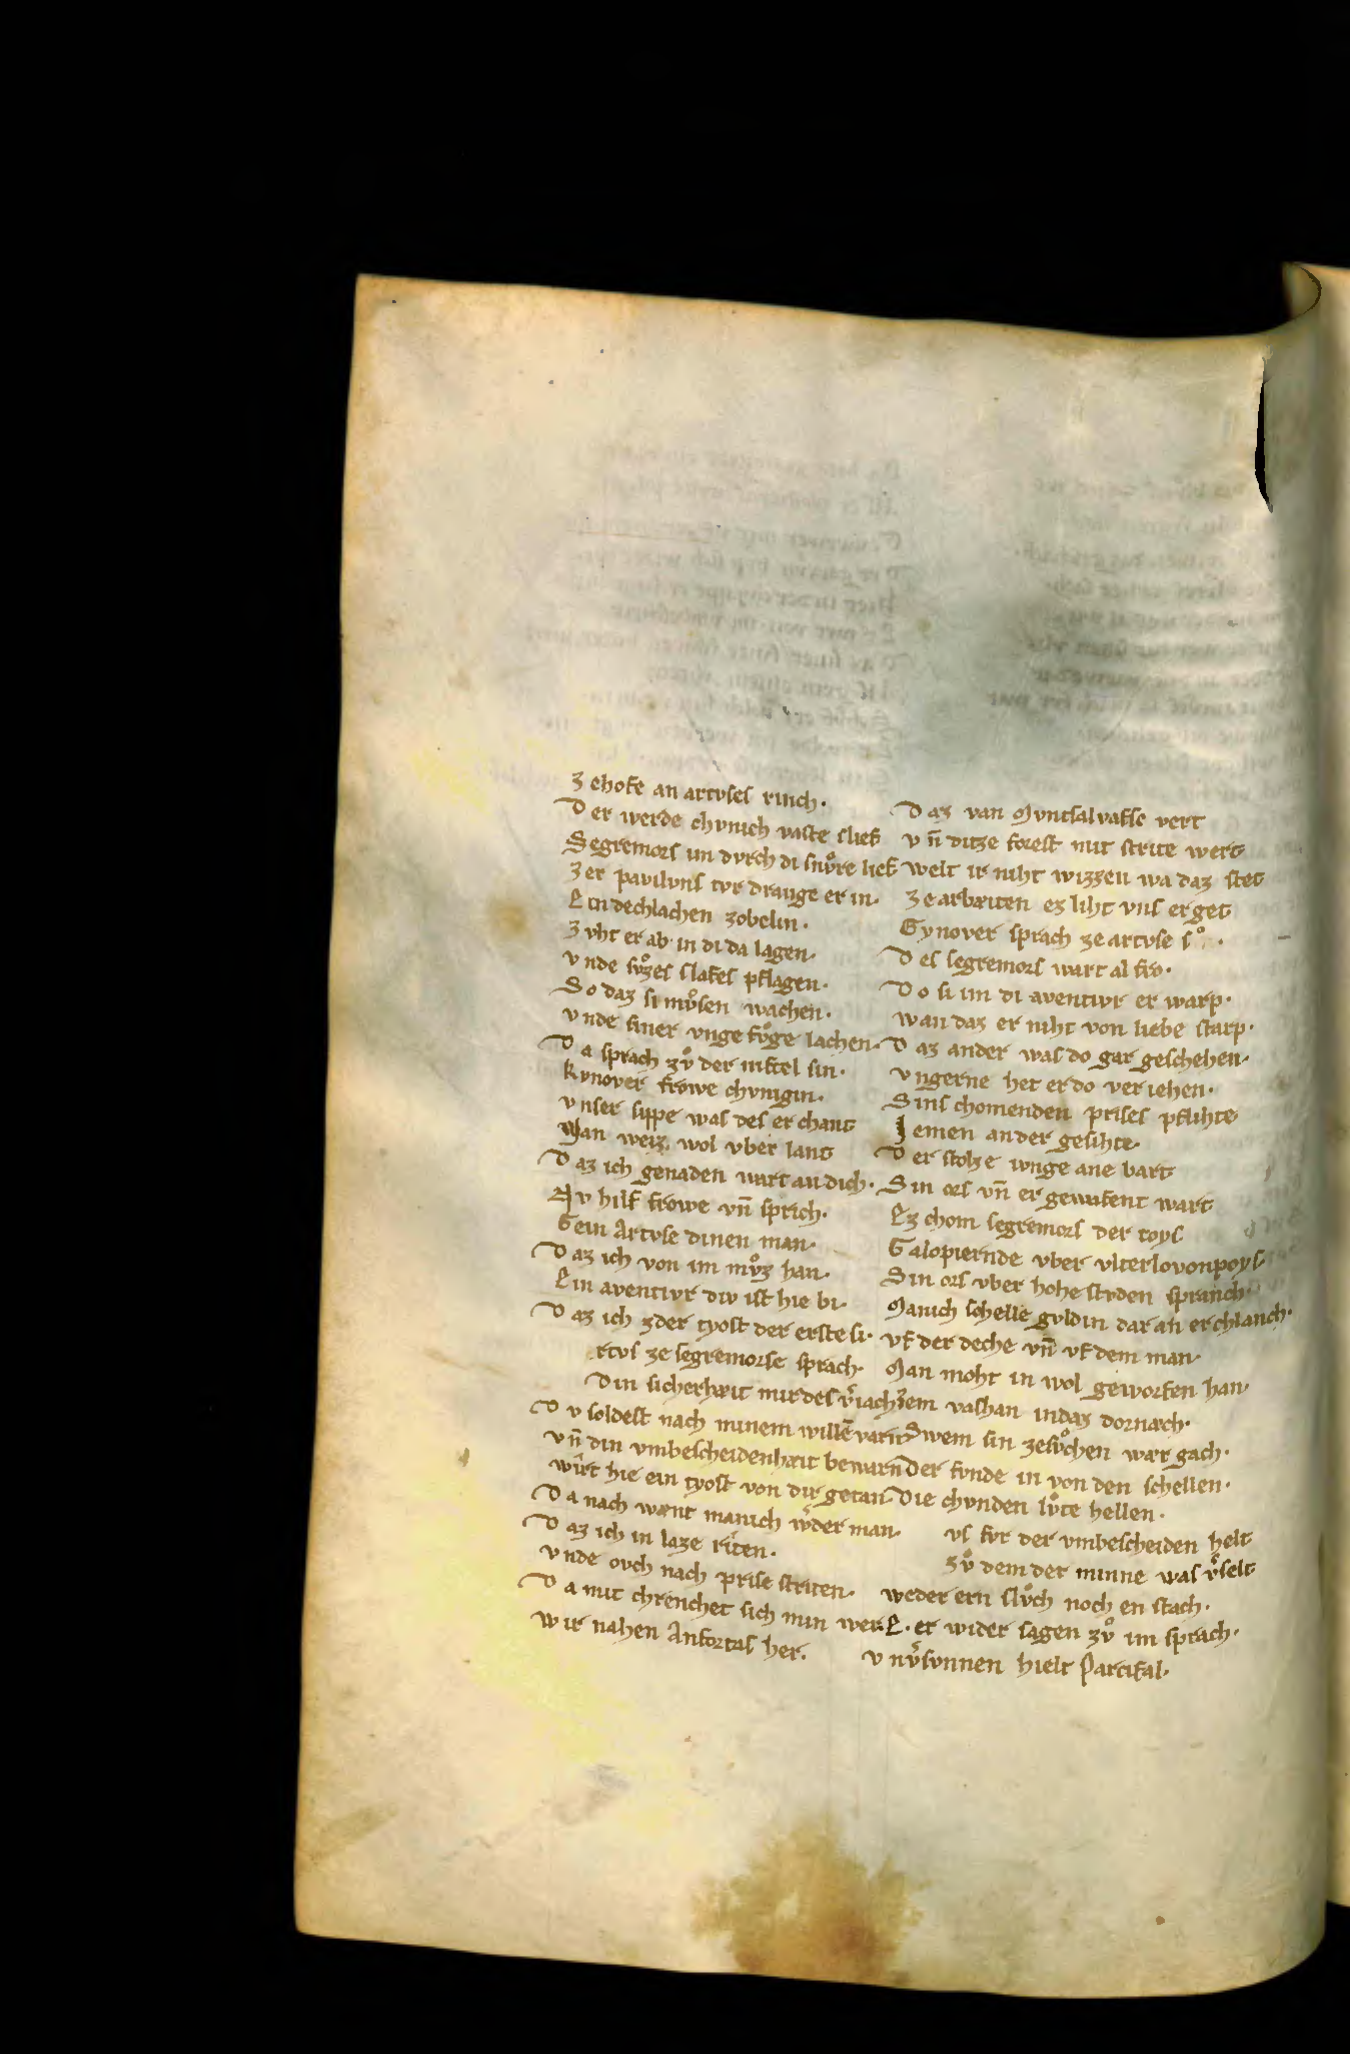 Zehofe an artvses rinch·
Der werde chvnich vaste slief
Segremors im dvrch di snvͦre lief
Zer pavilvns tvr drange er in·
Ein dechlachen zobelin·
Zvht er ab in di da lagen·
vnde svͦzes slafes pflagen·
So daz si mvͦsen wachen·
vnde siner vnge fvͦge lachen·
Da sprach zvͦ der niftel sin·
kynover frowe chvnigin·
vnser sippe was des er chant
Man weiz wol vber lant
Daz ich genaden wart an dich·
Nv hilf frowe vn̄ sprich·
Gein Artvse dinen man·
Daz ich von im mvͦz han·
Ein aventivr div ist hie bi·
Daz ich zder tyost der erste si·
rtvs ze segremorse sprach·
Din sicherhæit mir des v̓iach
Dv soldest nach minem willē varn
vn̄ din vmbescheidenhæit bewarn
wirt hie ein tyost von dir getan·
Da nach wænt manich w̓der man·
Daz ich in laze riten·
vnde ovch nach prise striten·
Da mit chrenchet sich min wer·
wir nahen Anfortas her·
Daz van Mvntsalvafsc vert
vn̄ ditze forest mit strite wert
welt ir niht wizzen wa daz stet
Ze arbæiten ez liht vns erget
Gynover sprach ze artvse sͦ·
Des segremors wart al fro·
Do si im di aventivr er warp·
wan daz er niht von liebe starp·
Daz ander was do gar geschehen·
vngerne het er do ver iehen·
Sins chomenden prises pflihte
Iemen ander gesihte·
Der stolze ivnge ane bart
Sin ors vn̄ er gewafent wart
Ez chom segremors der roys
Galopiernde vber vlterlovonpoys·
Sin ors vber hohe stvden spranch·
Manich schelle gvldin dar an erchlanch·
vf der deche vn̄ vf dem man·
Man moht in wol geworfen han·
zem vashan in daz dornæch·
Swem sin zesvͦchen wær gach·
Der fvnde in von den schellen·
Die chvnden lvͦte hellen·
vs fvr der vmbescheiden helt
zvͦ dem der minne was v̓selt
weder ern slvͦch noch en stach·
E· er wider sagen zvͦ im sprach·
vnv̓svnnen hielt Parcifal·